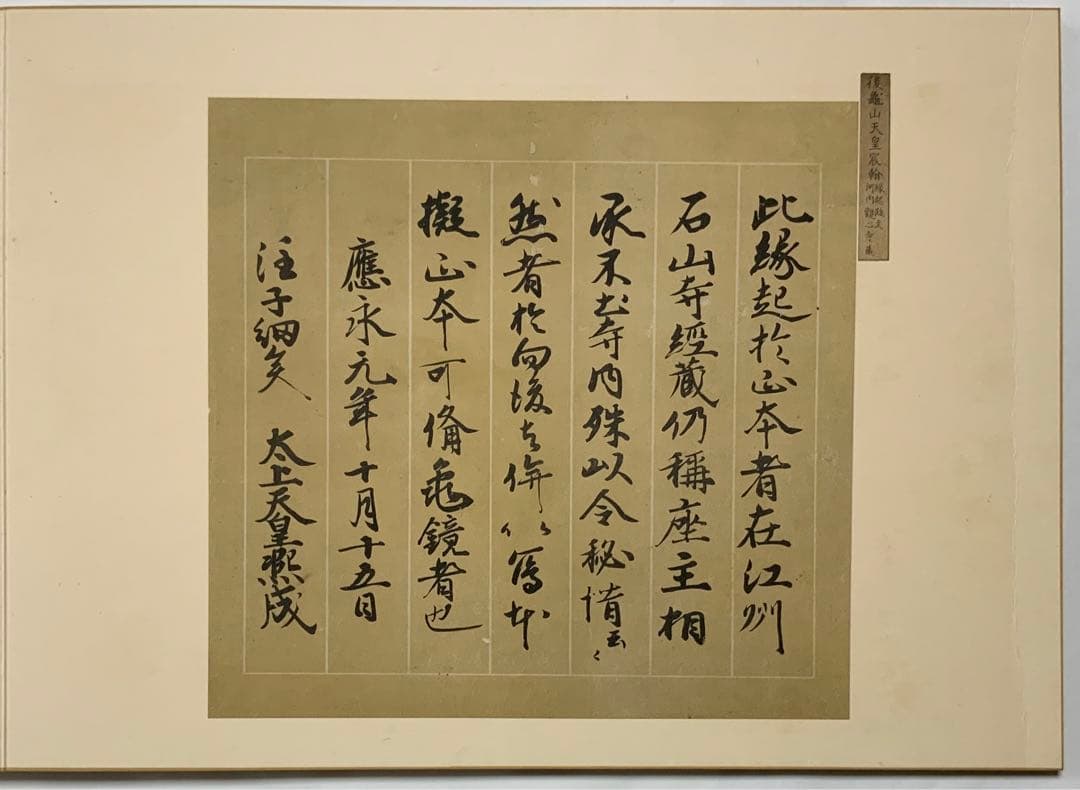 後龜山天皇宸翰
緣起跋文
河内觀心寺藏
此緣起於正本者在江州
石山寺經藏仍稱座主相
承不出寺内殊以令秘惜云〻
然者於向後者併以寫本
擬正本可備龜鏡者也
應永元年十月十五日
注子細矣 太上天皇熙成